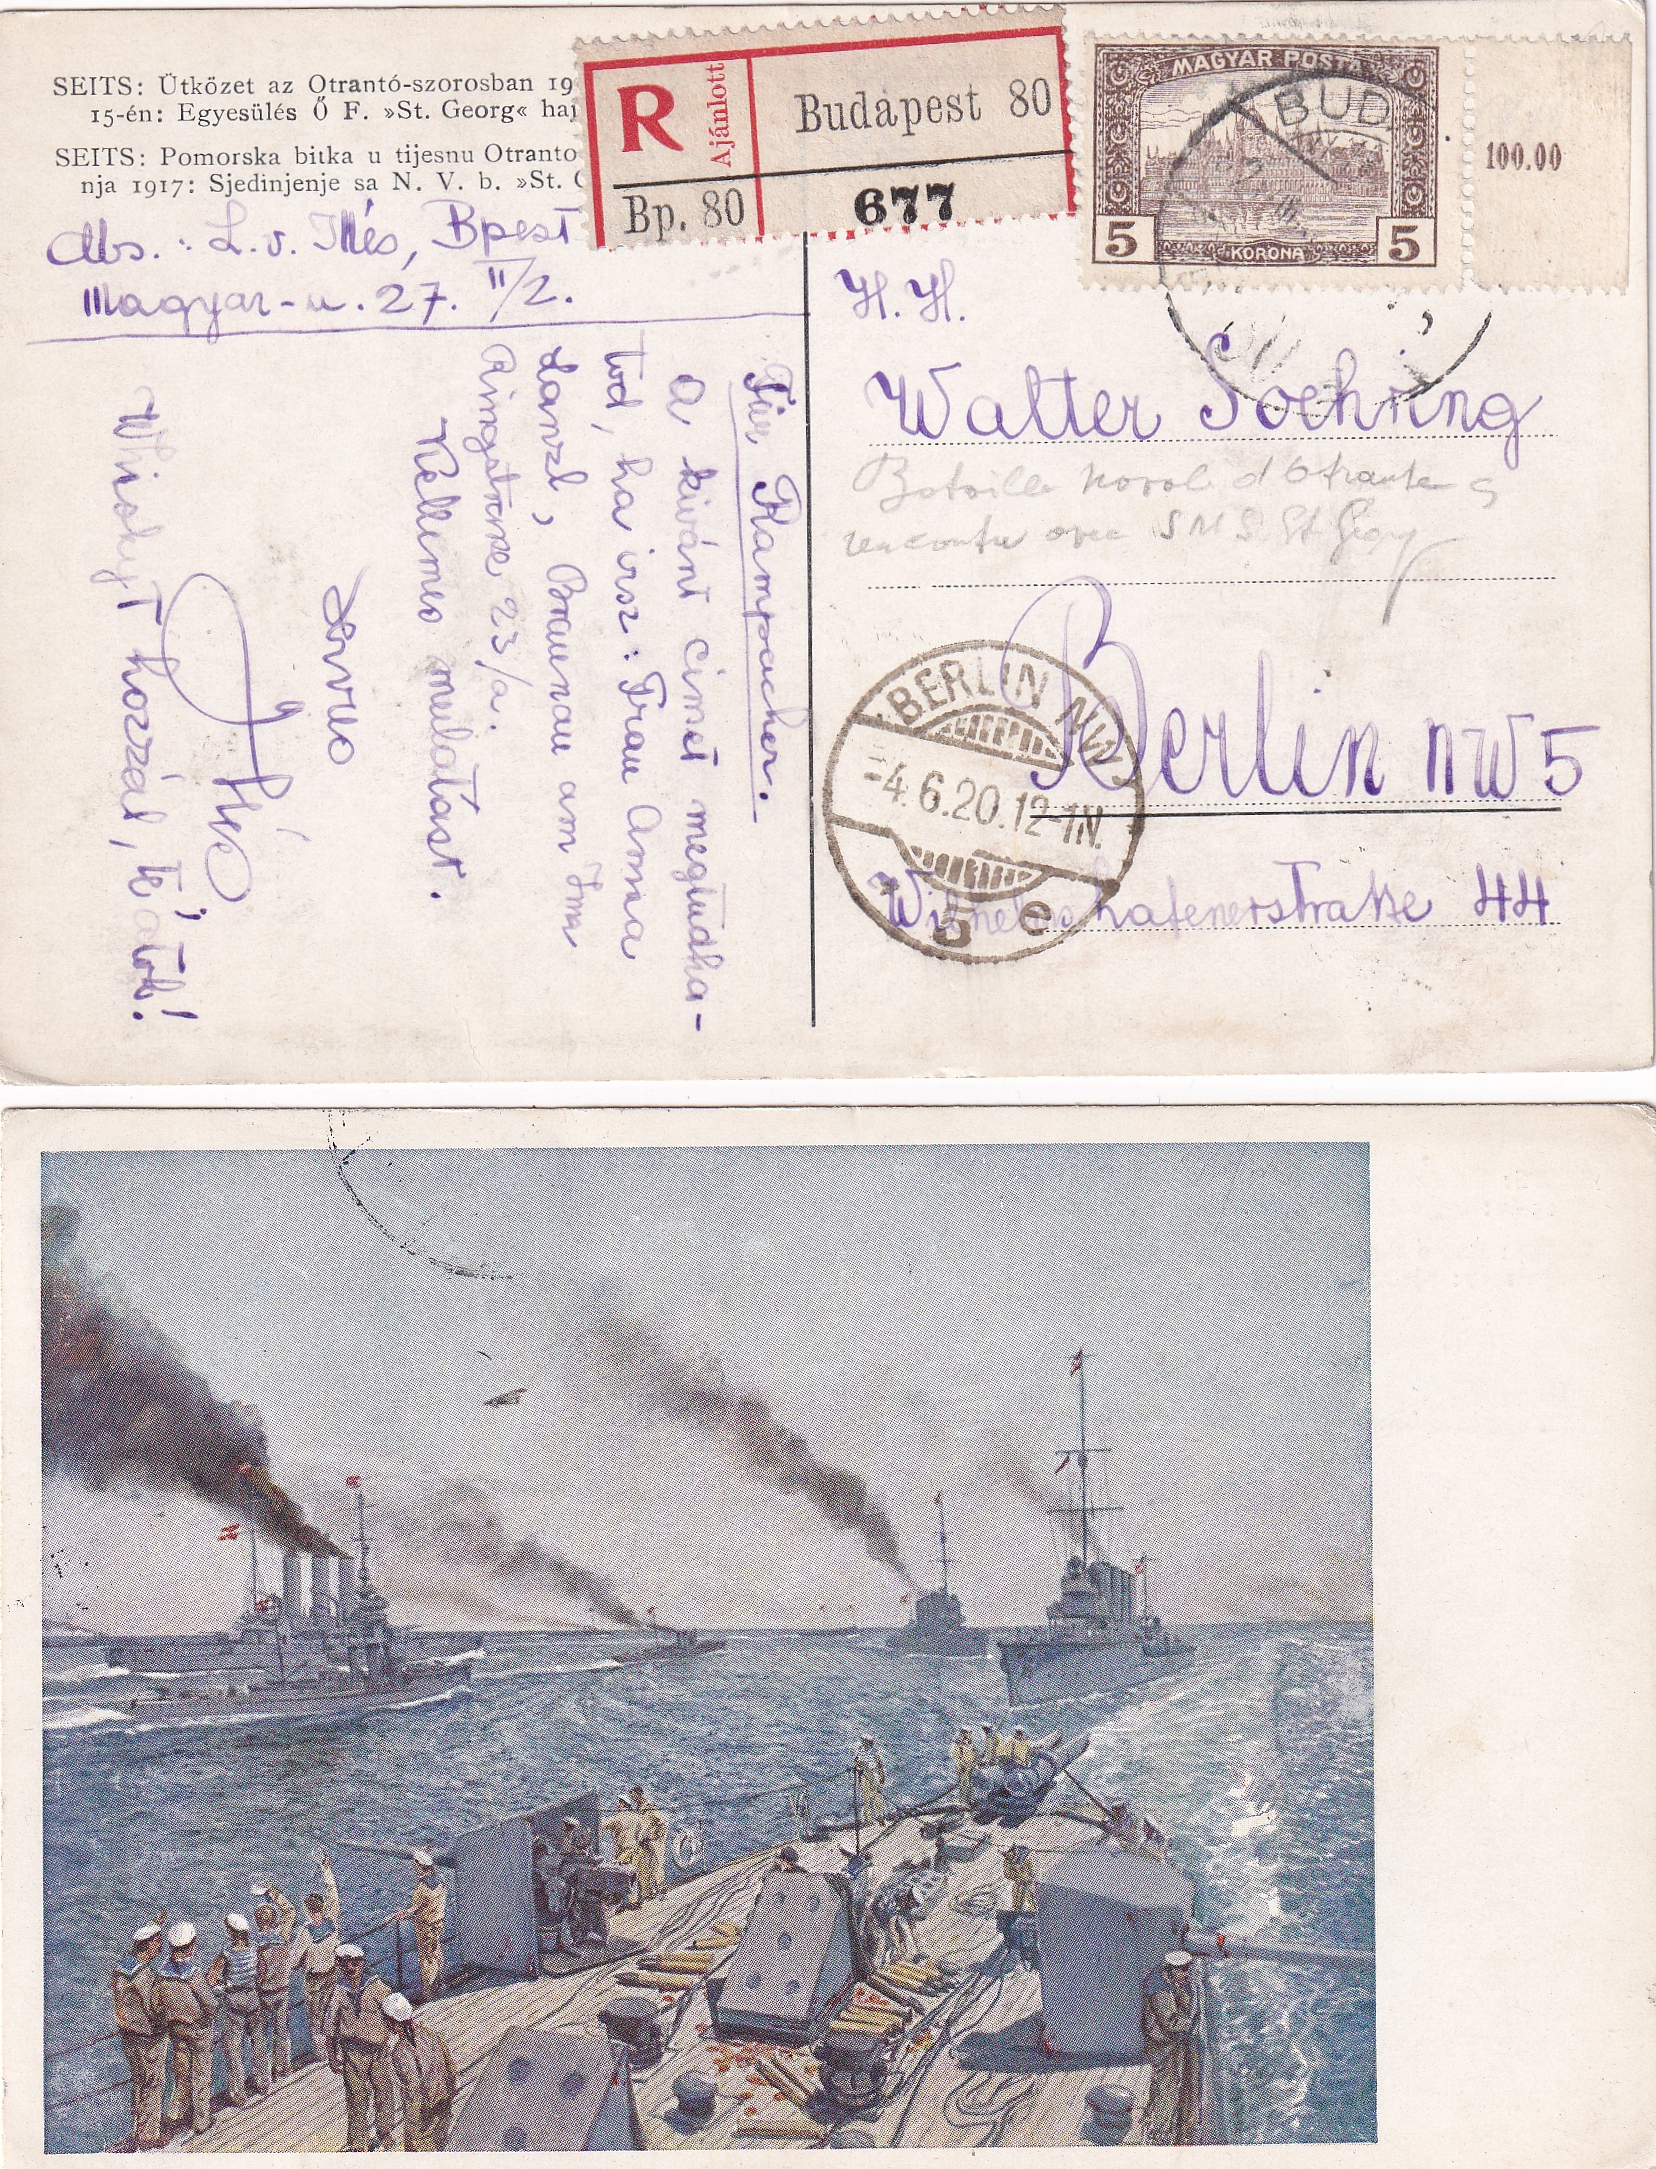 SEITS: Ütközet az Otrantó-szorosban 19
15-én: Egyesülés Ő F. »St. Georg« haj
SEITS: Pomorska bitka u tijesnu Otranto
nja 1917: Sjedinjenje sa N. V. b. »St. G
R
Ajánlott
Budapest 80
Bp. 80
677
MAGYAR POSTA
5 KORONA 5
100.00
BUD
Abs.: L. v. Illés, Bpest
Magyar-u. 27. II/2.
Für Rampacher.
A kivánt cimet megtudha-
tod, ha irsz: Frau Anna
Lanzl, Braunau am Inn
Ringstrsse 23/a.
Kellemes mulatást.
Servus
Illés
hozzád, te
H. H.
Walter Soehring
Bataille navale d'Otrante
rencontre avec SMS St Georg
Berlin NW 5
Wilhelmshafenerstraße 44
BERLIN NW
-4.6.20.12-1N.
5 e